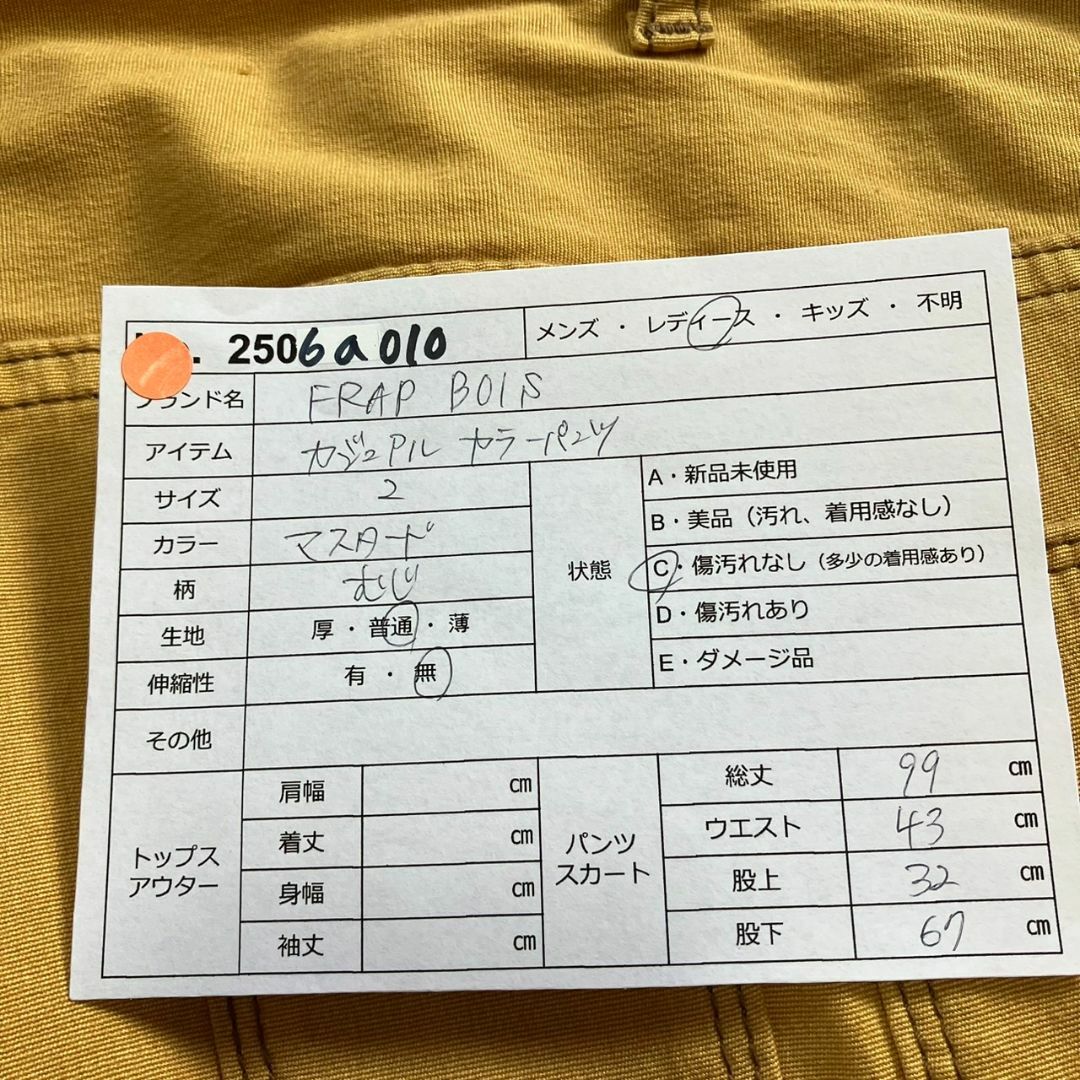 . 2506a010
メンズ ・ レディース ・ キッズ ・ 不明
ブランド名 FRAP BOIS
アイテム カジュアル カラーパンツ
サイズ 2
カラー マスタード
柄 むじ
生地 厚・普通・薄
伸縮性 有・無
状態
A・新品未使用
B・美品（汚れ、着用感なし）
C・傷汚れなし（多少の着用感あり）
D・傷汚れあり
E・ダメージ品
その他
トップス
アウター
肩幅 ㎝
着丈 ㎝
身幅 ㎝
袖丈 ㎝
パンツ
スカート
総丈 99 ㎝
ウエスト 43 ㎝
股上 32 ㎝
股下 67 ㎝